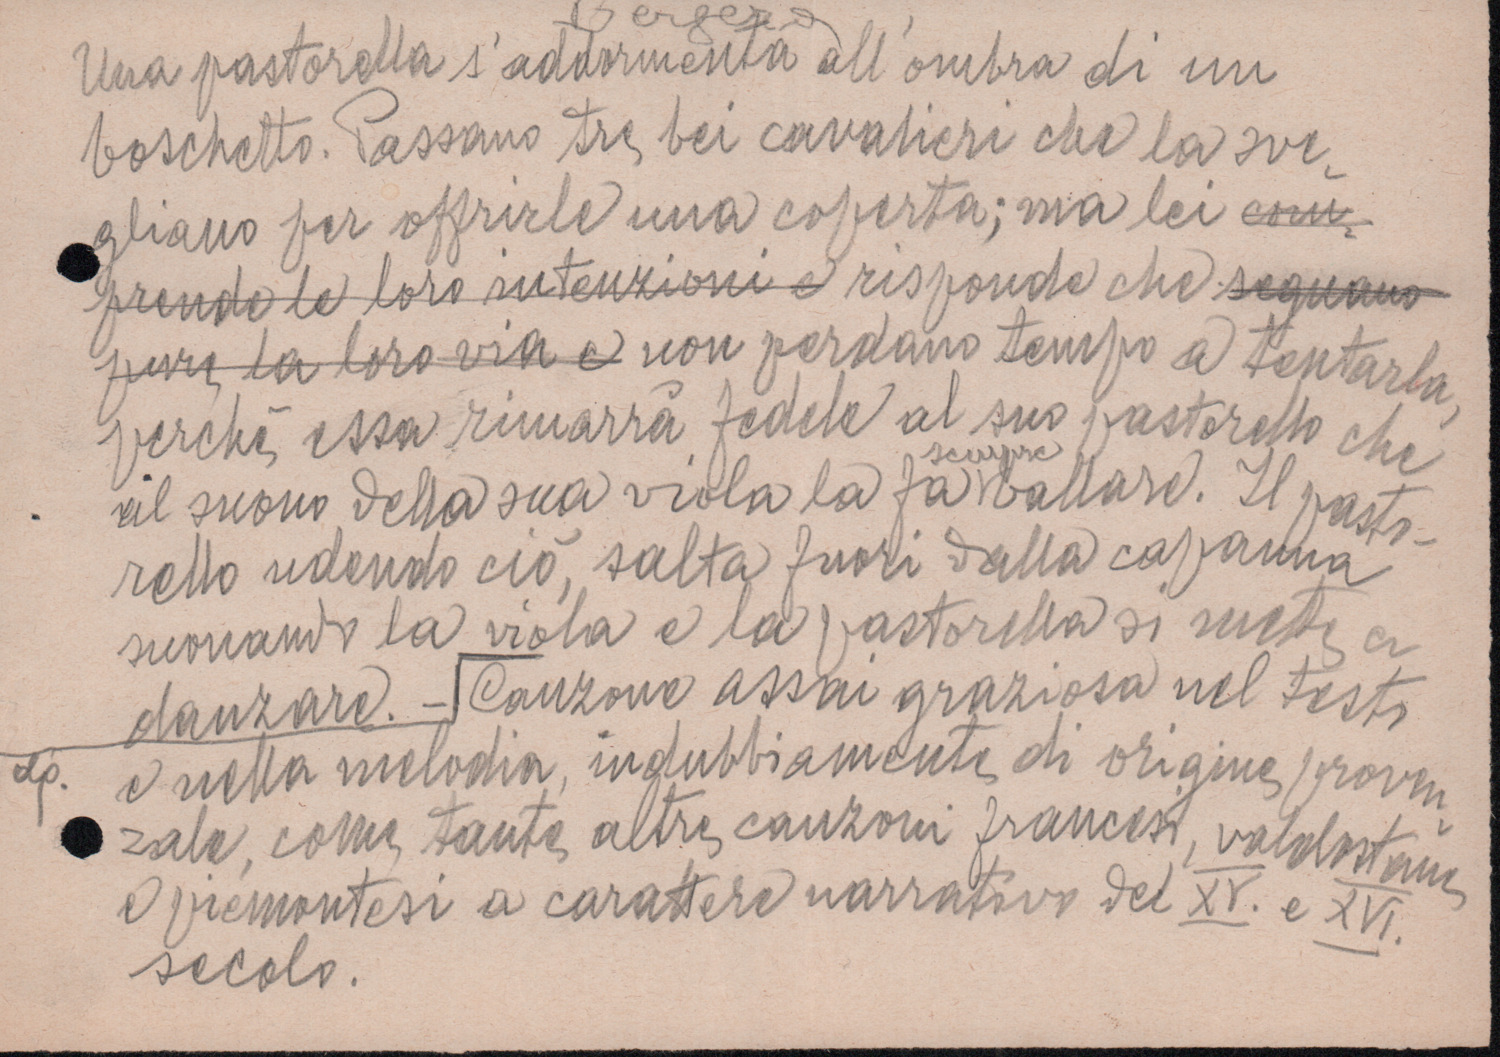 Bergera
Una pastorella s'addormenta all'ombra di un
boschetto. Passano tre bei cavalieri che la sve-
gliano per offrirle una coperta; ma lei com-
prende le loro intenzioni e risponde che seguano
pure la loro via e non perdano tempo a tentarla,
perchè essa rimarrà fedele al suo pastorello che
sempre
al suono della sua viola la fa ballare. Il pasto-
rello udendo ciò, salta fuori dalla capanna
suonando la viola e la pastorella si mette a
danzare. - Canzone assai graziosa nel testo
e nella melodia, indubbiamente di origine proven-
zale, come tante altre canzoni francesi, valdostane
e piemontesi a carattere narrativo del XV. e XVI.
secolo.